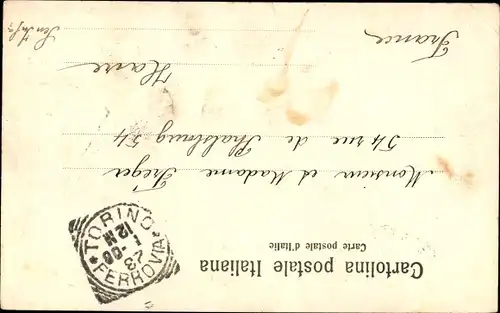 Cartolina postale Italiana
Carte postale d'Italie
TORINO
12 M
1-00
23
FERROVIA
Monsieur et Madame Fréger
54 rue de Phalsbourg 54
Havre
France